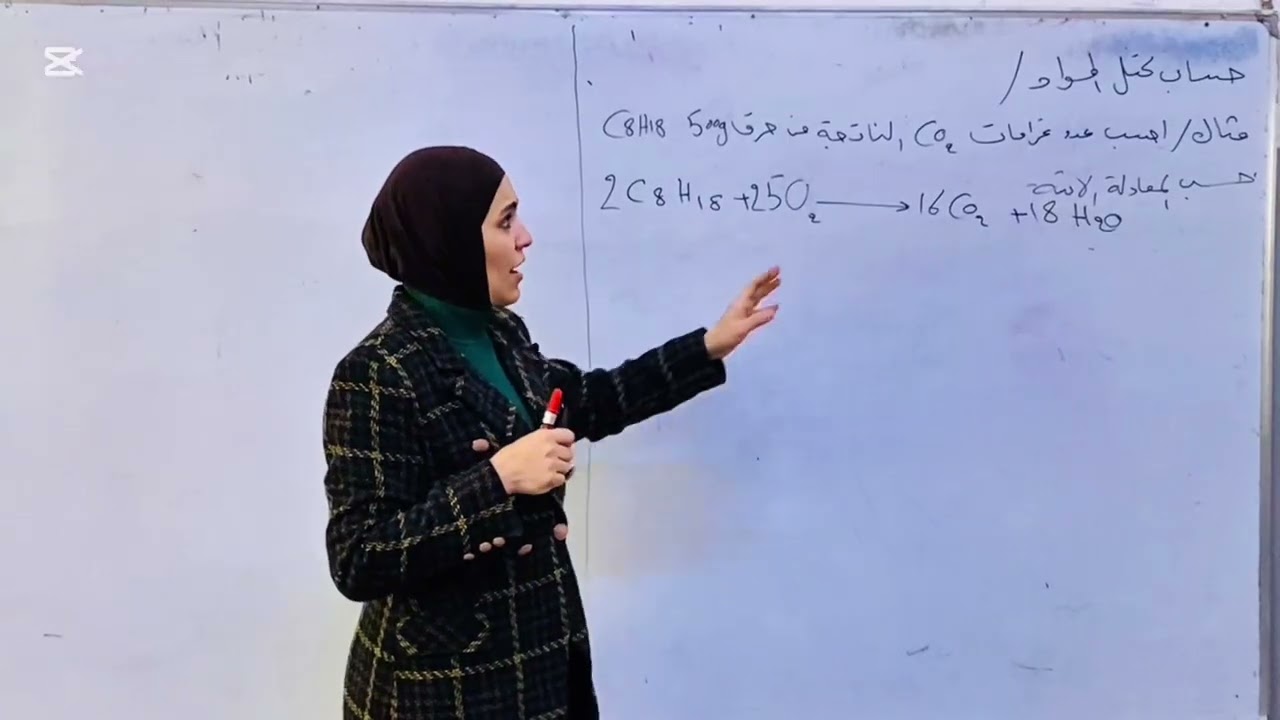 حساب كتل المواد /
مثال / احسب عدد غرامات CO₂ الناتجة من حرق 500g C8H18
حسب المعادلة الاتية
2C8H18 + 25O₂ → 16CO₂ + 18H₂O